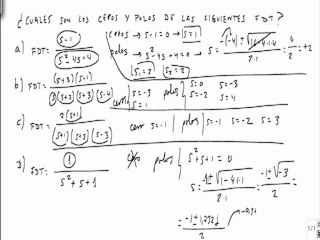 ¿CUALES SON LOS CEROS Y POLOS DE LAS SIGUIENTES FDT?
a) FDT: (s-1) / (s²-4s+4) ceros → s-1=0 → s=1
polos → s²-4s+4=0 → s = (-(-4) ± √(16-4·1·4)) / 2·1 = 4/2 = +2
s₁=2 s₂=2
b) FDT = (s+3)(s-1) / s(s+3)(s+2)(s-4) ceros s=-3 s=1 polos s=0 s=-3 s=-2 s=4
c) FDT= 2(s+1) / (s+1)(s+2)(s-3) cero s=-1 polos s=-1 s=-2 s=3
d) FDT: 1 / s²+s+1 polos s²+s+1=0
s = (-1±√(1-4·1)) / 2·1 = (-1±√-3) / 2 =
= (-1±1,732j) / 2